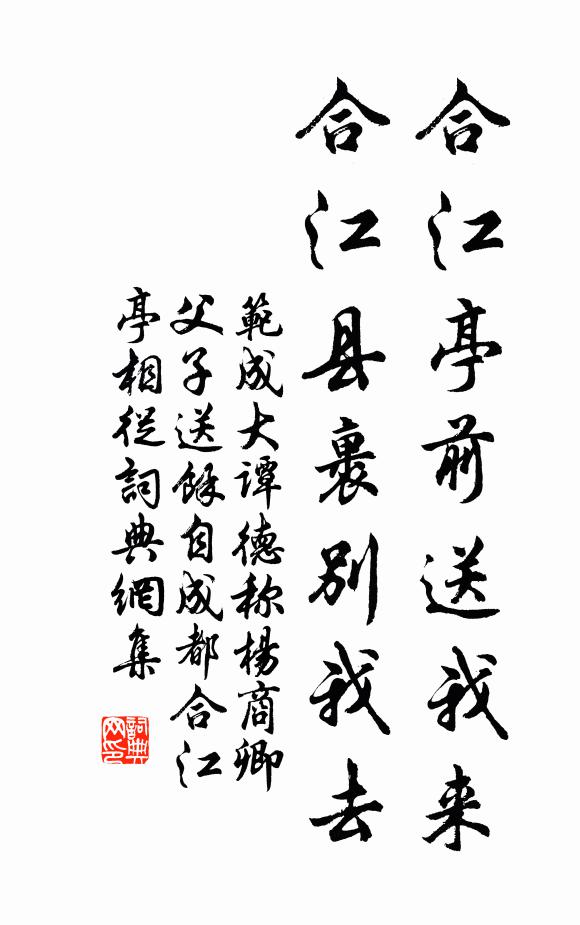 合江亭前送我来
合江县裏别我去
範成大谭德称楊商卿
父子送餘自成都合江
亭相從詞典網集
詞典网印